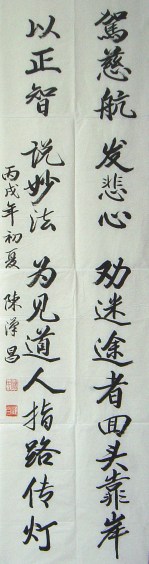 駕慈航 发悲心 劝迷途者回头靠岸
以正智 说妙法 为见道人指路传灯
丙戌年初夏 陳澤昌